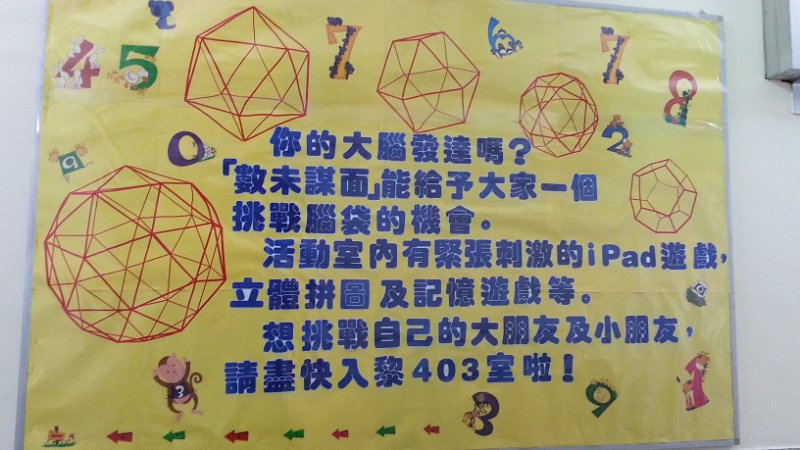 4 5 7 6 7 8
9 0 2
你的大腦發達嗎？
「數未謀面」能給予大家一個
挑戰腦袋的機會。
活動室內有緊張刺激的iPad遊戲，
立體拼圖及記憶遊戲等。
想挑戰自己的大朋友及小朋友，
請盡快入黎403室啦！
3 9 1